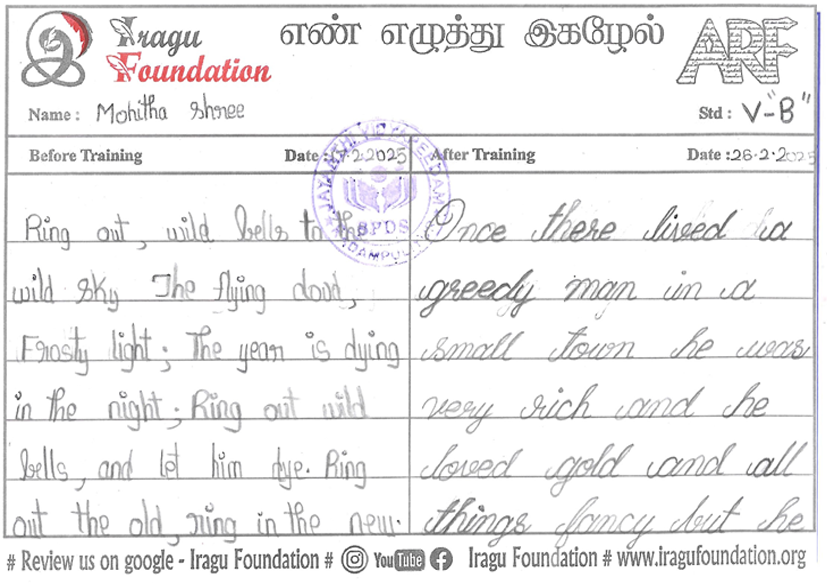 Iragu Foundation
எண் எழுத்து இகழேல்
ARF
Name : Mohitha Shree
Std : V-"B"
Before Training
Date :17.2.2025
After Training
Date :26.2.2025
Ring out, wild bells to the
wild sky The flying cloud,
Frosty light; The year is dying
in the night; Ring out wild
bells, and let him dye. Ring
out the old, ring in the new.
Once there lived a
greedy man in a
small town he was
very rich and he
loved gold and all
things fancy but he
SPDS
# Review us on google - Iragu Foundation # YouTube Iragu Foundation # www.iragufoundation.org